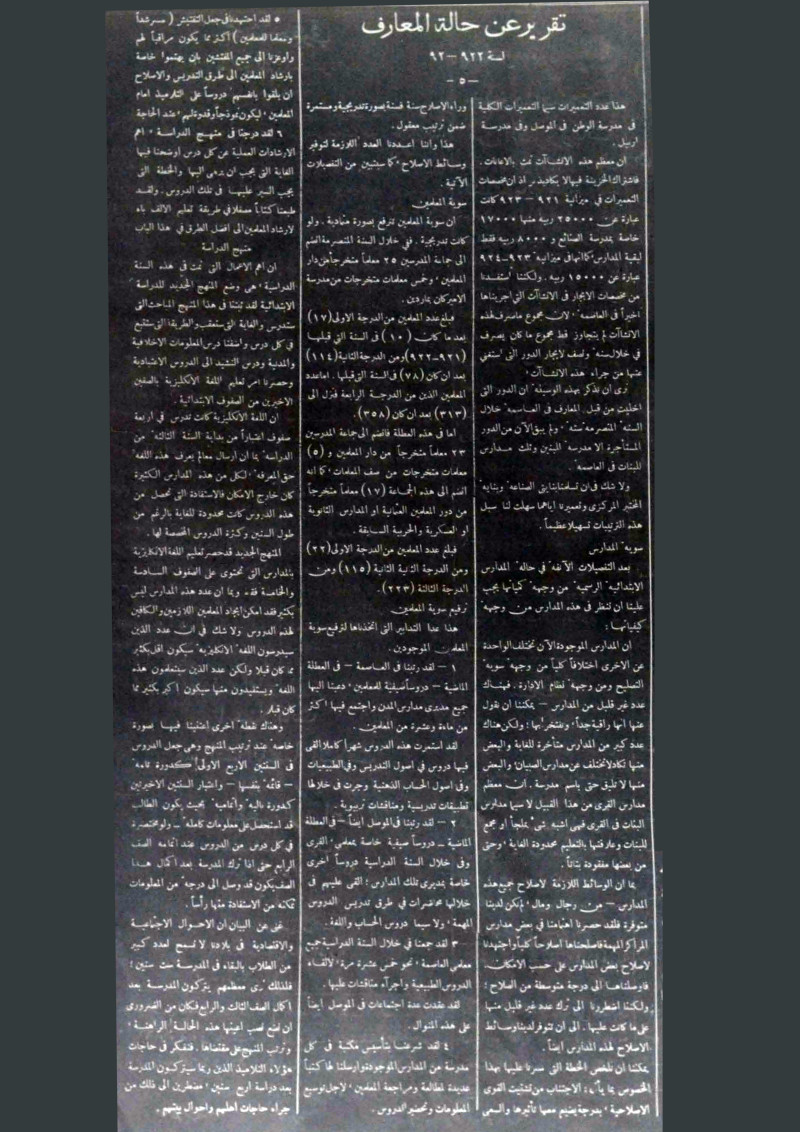 تقرير عن حالة المعارف
لسنة ٩٢٢ - ٩٢
- ٥ -
هذا عدد التعميرات سيما التعميرات الكلية
فى مدرسة الوطن فى الموصل وفى مدرسة
اربيل .
ان معظم هذه الانشاآت تمت بالاعانات .
فاشتراك الخزينة فيها لا يكاد يذكر اذ ان مخصصات
التعميرات فى ميزانية ٩٢١ - ٩٢٣ كانت
عبارة عن ٢٥٠٠٠ ربيه منها ١٧٠٠٠
خاصة بمدرسة الصنائع و ٨٠٠٠ ربيه فقط
لبقية المدارس كما انها فى ميزانية ٩٢٣ - ٩٢٤
عبارة عن ١٥٠٠٠ ربيه . ولكننا استفدنا
من مخصصات الايجار فى الانشاآت التى اجريناها
اخيراً فى العاصمة ، لان مجموع ما صرف لهذه
الانشاآت لم يتجاوز قط مجموع ما كان يصرف
فى خلال سنة ونصف لايجار الدور التى استغنى
عنها من جراء هذه الانشاآت .
نرى ان نذكر بهذه الوسيلة ان الدور التى
اخليت من قبل المعارف فى العاصمة خلال
السنة المنصرمة ستة . ولم يبق الآن من الدور
المستأجرة الا مدرسة البنين وثلث مدارس
للبنات فى العاصمة .
ولا شك فى ان تسلمنا بنايتى الصناعة وبناية
المختبر المركزى وتعميرنا اياهما سهلت لنا سبل
هذه الترتيبات تسهيلا عظيماً .
سوية المدارس
بعد التفصيلات الآنفة فى حالة المدارس
الابتدائية الرسمية من وجهة كمياتها يجب
علينا ان ننظر فى هذه المدارس من وجهة
كيفياتها :
ان المدارس الموجودة الآن تختلف الواحدة
عن الاخرى اختلافاً كلياً من وجهة سوية
التسليح ومن وجهة نظام الادارة . فهناك
عدد غير قليل من المدارس - يمكننا ان نقول
عنها انها راقية جداً ، ونفتخر بها ؛ ولكن هناك
عدد كبير من المدارس متأخرة للغاية والبعض
منها تكاد لا تختلف عن مدارس الصبيان والبعض
منها لا تليق حتى باسم مدرسة . ان معظم
مدارس القرى من هذا القبيل لا سيما مدارس
البنات فى القرى فهى اشبه شئ بملجأ او مجمع
للبنات وعلاقتها بالتعليم محدودة للغاية ، وحتى
من بعضها مفقودة بتاتاً .
بما ان الوسائط اللازمة لاصلاح جميع هذه
المدارس - من رجال ومال - لم تكن لدينا
متوفرة فلقد حصرنا اهتمامنا فى بعض مدارس
المراكز المهمة فاصلحناها اصلاحاً كلياً واجتهدنا
لاصلاح بعض المدارس على حسب الامكان
فاوصلناها الى درجة متوسطة من الصلاح ؛
ولكننا اضطررنا الى ترك عدد غير قليل منها
على ما كانت عليها . الى ان تتوفر لدينا وسائط
الاصلاح لهذه المدارس ايضاً .
يمكننا ان نلخص الخطة التى سرنا عليها بهذا
الخصوص بما يأتى : الاجتناب من تشتيت القوى
الاصلاحية ، بدرجة يضيع معها تأثيرها والسعى
وراء الاصلاح سنة فسنة بصورة تدريجية ومستمرة
ضمن ترتيب معقول .
هذا واننا اعددنا العدد اللازمة لتوفير
وسائط الاصلاح ؛ كما سيتبين من التفصيلات
الآتية .
سوية المعلمين
ان سوية المعلمين تترفع بصورة متمادية . ولو
كانت تدريجية . ففى خلال السنة المنصرمة انضم
الى جماعة المدرسين ٢٥ معلماً متخرجاً من دار
المعلمين ، وخمس معلمات متخرجات من مدرسة
الاميركان بماردين .
فبلغ عدد المعلمين من الدرجة الاولى (١٧)
بعد ما كان (١٠) فى السنة التى قبلها
(٩٢١ - ٩٢٢) ومن الدرجة الثانية (١١٤)
بعد ان كان (٧٨) فى السنة التى قبلها . اما عدد
المعلمين الذين من الدرجة الرابعة فنزل الى
(٣١٣) بعد ان كان (٣٥٨) .
اما فى هذه العطلة فانضم الى جماعة المدرسين
٢٣ معلماً متخرجاً من دار المعلمين و (٥)
معلمات متخرجات من صف المعلمات ؛ كما انه
انضم الى هذه الجماعة (١٧) معلماً متخرجاً
من دور المعلمين العثمانية او المدارس الثانوية
او العسكرية والحربية السابقة .
فبلغ عدد المعلمين من الدرجة الاولى (٢٢)
ومن الدرجة الثانية (١١٥) ومن
الدرجة الثالثة (٢٢٣) .
ترفيع سوية المعلمين
هذا عدا التدابير التى اتخذناها لترفيع سوية
المعلمين الموجودين .
١ - لقد رتبنا فى العاصمة - فى العطلة
الماضية - دروساً صيفية للمعلمين ، دعينا اليها
جميع مديرى مدارس المدن واجتمع فيها اكثر
من مائة وعشرة من المعلمين .
لقد استمرت هذه الدروس شهراً كاملا القى
فيها دروس فى اصول التدريس وفى الطبيعيات
وفى اصول الحساب الذهنية وجرت فى خلالها
تطبيقات تدريسية ومناقشات تربيوية .
٢ - لقد رتبنا فى الموصل ايضاً - فى العطلة
الماضية - دروساً صيفية خاصة بمعلمى القرى
وفى خلال السنة الدراسية دروساً اخرى
خاصة بمديرى تلك المدارس ؛ القى عليهم فى
خلالها محاضرات فى طرق تدريس الدروس
المهمة ؛ ولا سيما دروس الحساب واللغة .
٣ لقد جمعنا فى خلال السنة الدراسية جميع
معلمى العاصمة ، نحو خمس عشرة مرة ؛ لالقاء
الدروس الطبيعية واجراء مناقشات عليها .
لقد عقدت عدة اجتماعات فى الموصل ايضاً
على هذه المنوال .
٤ لقد شرعنا بتأسيس مكتبة فى كل
مدرسة من المدارس الموجودة وارسلنا لها كتباً
عديدة لمطالعة ومراجعة المعلمين ، لاجل توسيع
المعلومات وتحضير الدروس .
٥ لقد اجتهدنا فى جعل التفتيش (مسرشداً
ومعلما للمعلمين) اكثر مما يكون مراقباً لهم
واوعزنا الى جميع المفتشين بان يهتموا خاصة
بارشاد المعلمين الى طرق التدريس والاصلاح
ان يلقوا بانفسهم دروساً على التلاميذ امام
المعلمين ؛ ليكون نموذجاً وقدوة لهم ، عند الحاجة
٦ لقد درجنا فى منهج الدراسة ، اهم
الارشادات العملية عن كل درس اوضحنا فيها
الغاية التى يجب ان يدعى اليها والخطة التى
يجب السير عليها فى تلك الدروس . ولقد
طبعنا كتاباً مفصلا فى طريقة تعليم الالف باء
لارشاد المعلمين الى افضل الطرق فى هذا الباب
منهج الدراسة
ان اهم الاعمال التى تمت فى هذه السنة
الدراسية ، هى وضع المنهج الجديد للدراسة
الابتدائية لقد تبتنا فى هذا المنهج المباحث التى
ستدرس والغاية التى ستعقب والطريقة التى ستتبع
فى كل درس واضفنا درس المعلومات الاخلاقية
والمدنية ودرس النشيد الى الدروس الاعتيادية
وحصرنا امر تعليم اللغة الانكليزية بالصفين
الاخيرين من الصفوف الابتدائية .
ان اللغة الانكليزية كانت تدرس فى اربعة
صفوف اعتباراً من بداية السنة الثالثة من
الدراسة بما ان ارسال معلم يعرف هذه اللغة
حق المعرفة ، لكل من هذه المدارس الكثيرة
كان خارج الامكان فالاستفادة التى تحصل من
هذه الدروس كانت محدودة للغاية بالرغم من
طول السنين وكثرة الدروس المخصصة لها .
المنهج الجديد قد حصر تعليم اللغة الانكليزية
بالمدارس التى تحتوى على الصفوف السادسة
والخامسة فقط وبما ان عدد هذه المدارس ليس
بكثير فقد امكن ايجاد المعلمين اللازمين والكافين
لهذه الدروس ولا شك فى ان عدد الذين
سيدرسون اللغة الانكليزية سيكون اقل بكثير
مما كان قبلا ولكن عدد الذين سيتعلمون هذه
اللغة ويستفيدون منها سيكون اكبر بكثير مما
كان قبلا .
وهناك نقطة اخرى اعتنينا فيها بصورة
خاصة عند ترتيب المنهج وهى جعل الدروس
فى السنتين الاربع الاولى ؛ كدورة تامة
- قائمة بنفسها - واعتبار السنتين الاخيرتين
كدورة تالية واتمامية بحيث يكون الطالب
قد استحصل على معلومات كاملة - ولو مختصرة
فى كل درس من الدروس عند اتمامه الصف
الرابع حتى اذا ترك المدرسة بعد اكمال هذا
الصف يكون قد وصل الى درجة من المعلومات
تمكنه من الاستفادة منها رأساً .
غنى عن البيان ان الاحوال الاجتماعية
والاقتصادية فى بلادنا لا تسمح لعدد كبير
من الطلاب بالبقاء فى المدرسة ست سنين ؛
فلذلك نرى معظمهم يتركون المدرسة بعد
اكمال الصف الثالث والرابع فكان من الضرورى
ان نضع نصب اعيننا هذه الحالة الراهنة ،
ونرتب المنهج على مقتضاها . فنفكر فى حاجات
هؤلاء التلاميذ الذين ربما سيتركون المدرسة
بعد دراسة اربع سنين ؛ مضطرين الى ذلك من
جراء حاجات اهلهم واحوال بيتهم .